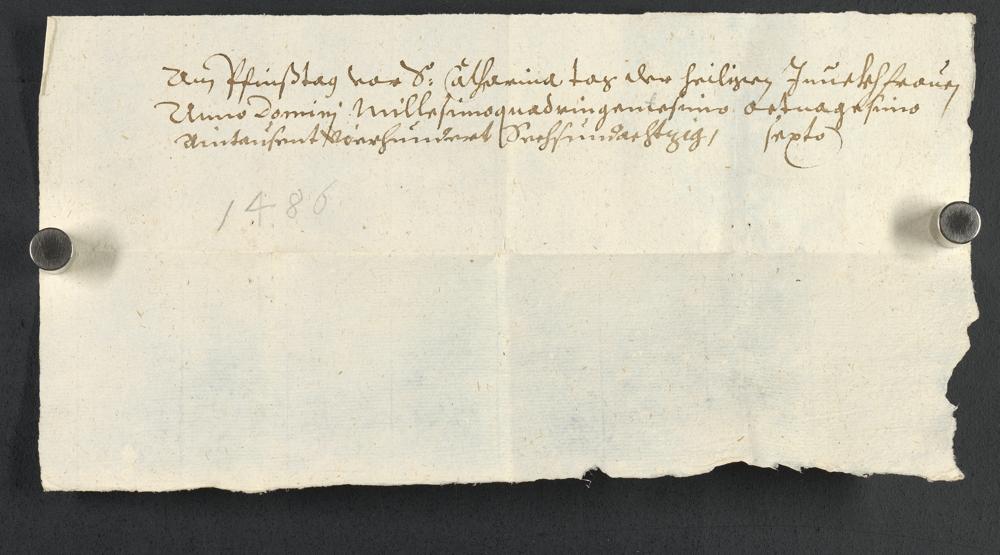 Am Pfinßtag vor S: Catharina tag der heiligen Junckhfrauen
Anno Domini Millesimoquadringentesimo octuagesimo
Aintausent Vierhundert Sechsundachtzig / sexto
1486